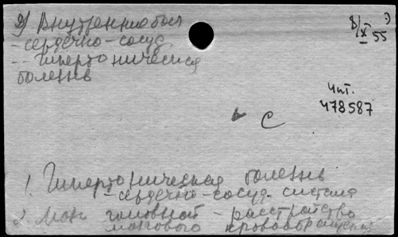 9) Внутренние бол
- сердечно-сосуд
-- Гипертоническая
болезнь
8/X 55
Чит.
478587
С
1. Гипертоническая болезнь
- сердечно-сосуд. система
2. Мозг головной - расстройство
мозгового кровообращения